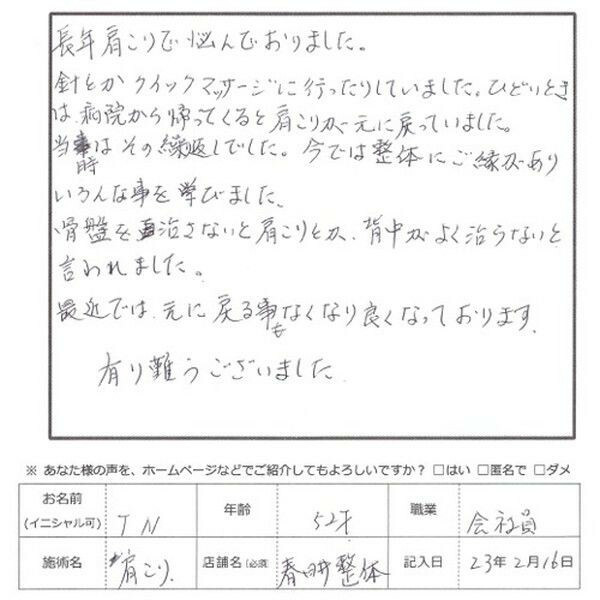 長年肩こりで悩んでおりました。
針とかクイックマッサージに行ったりしていました。ひどいとき
は、病院から帰ってくると肩こりが元に戻っていました。
当時はその繰返しでした。今では整体にご縁があり
いろんな事を学びました。
骨盤を治さないと肩こりとか、背中がよく治らないと
言われました。
最近では、元に戻る事もなくなり良くなっております。
有り難うございました
※ あなた様の声を、ホームページなどでご紹介してもよろしいですか？ □はい □匿名で □ダメ
お名前(イニシャル可) T N 年齢 52才 職業 会社員
施術名 肩こり 店舗名(必須) 春日井整体 記入日 23年2月16日